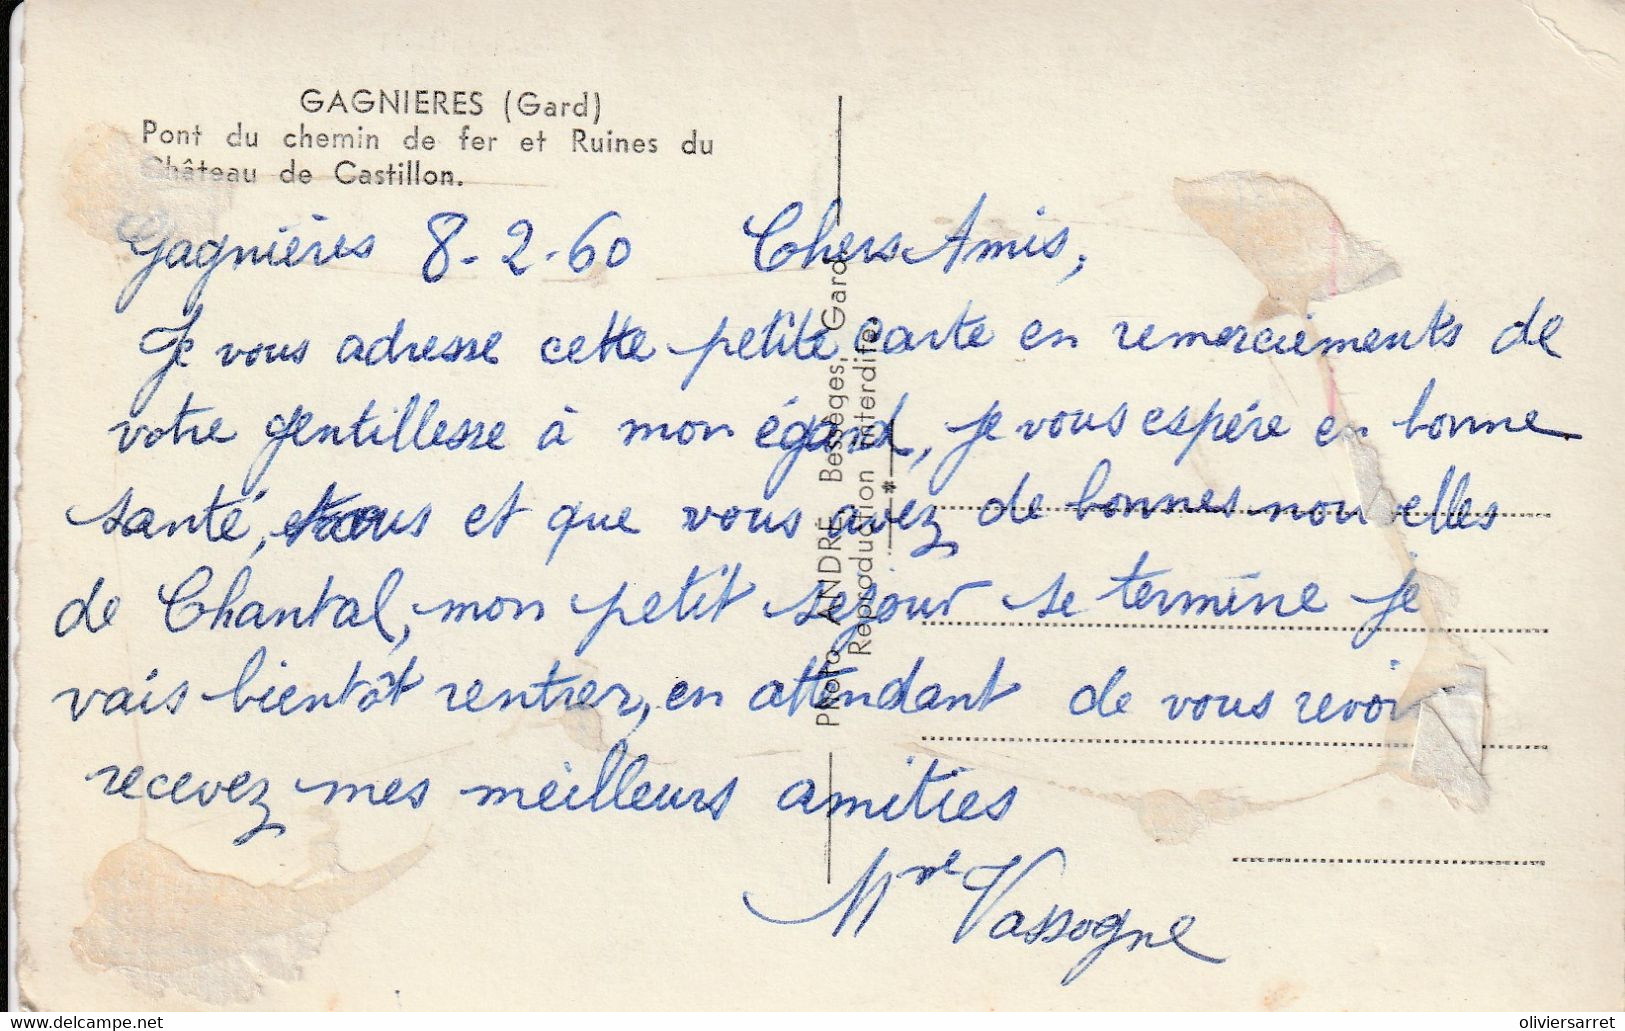 GAGNIERES (Gard)
Pont du chemin de fer et Ruines du
Château de Castillon.
Gagnières 8-2-60 Chers Amis,
Je vous adresse cette petite carte en remerciements de
votre gentillesse à mon égard, je vous espére en bonne
santé, et que vous avez de bonnes nouvelles
de Chantal, mon petit sejour se termine je
vais bientôt rentrer, en attendant de vous revoir
recevez mes meilleurs amities
Mme Vassogne
Photo ANDRÉ Bességes, Gard
Reproduction interdite
delcampe.net
oliviersarret